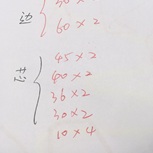 边
60×2
芯
45×2
40×2
36×2
30×2
10×4